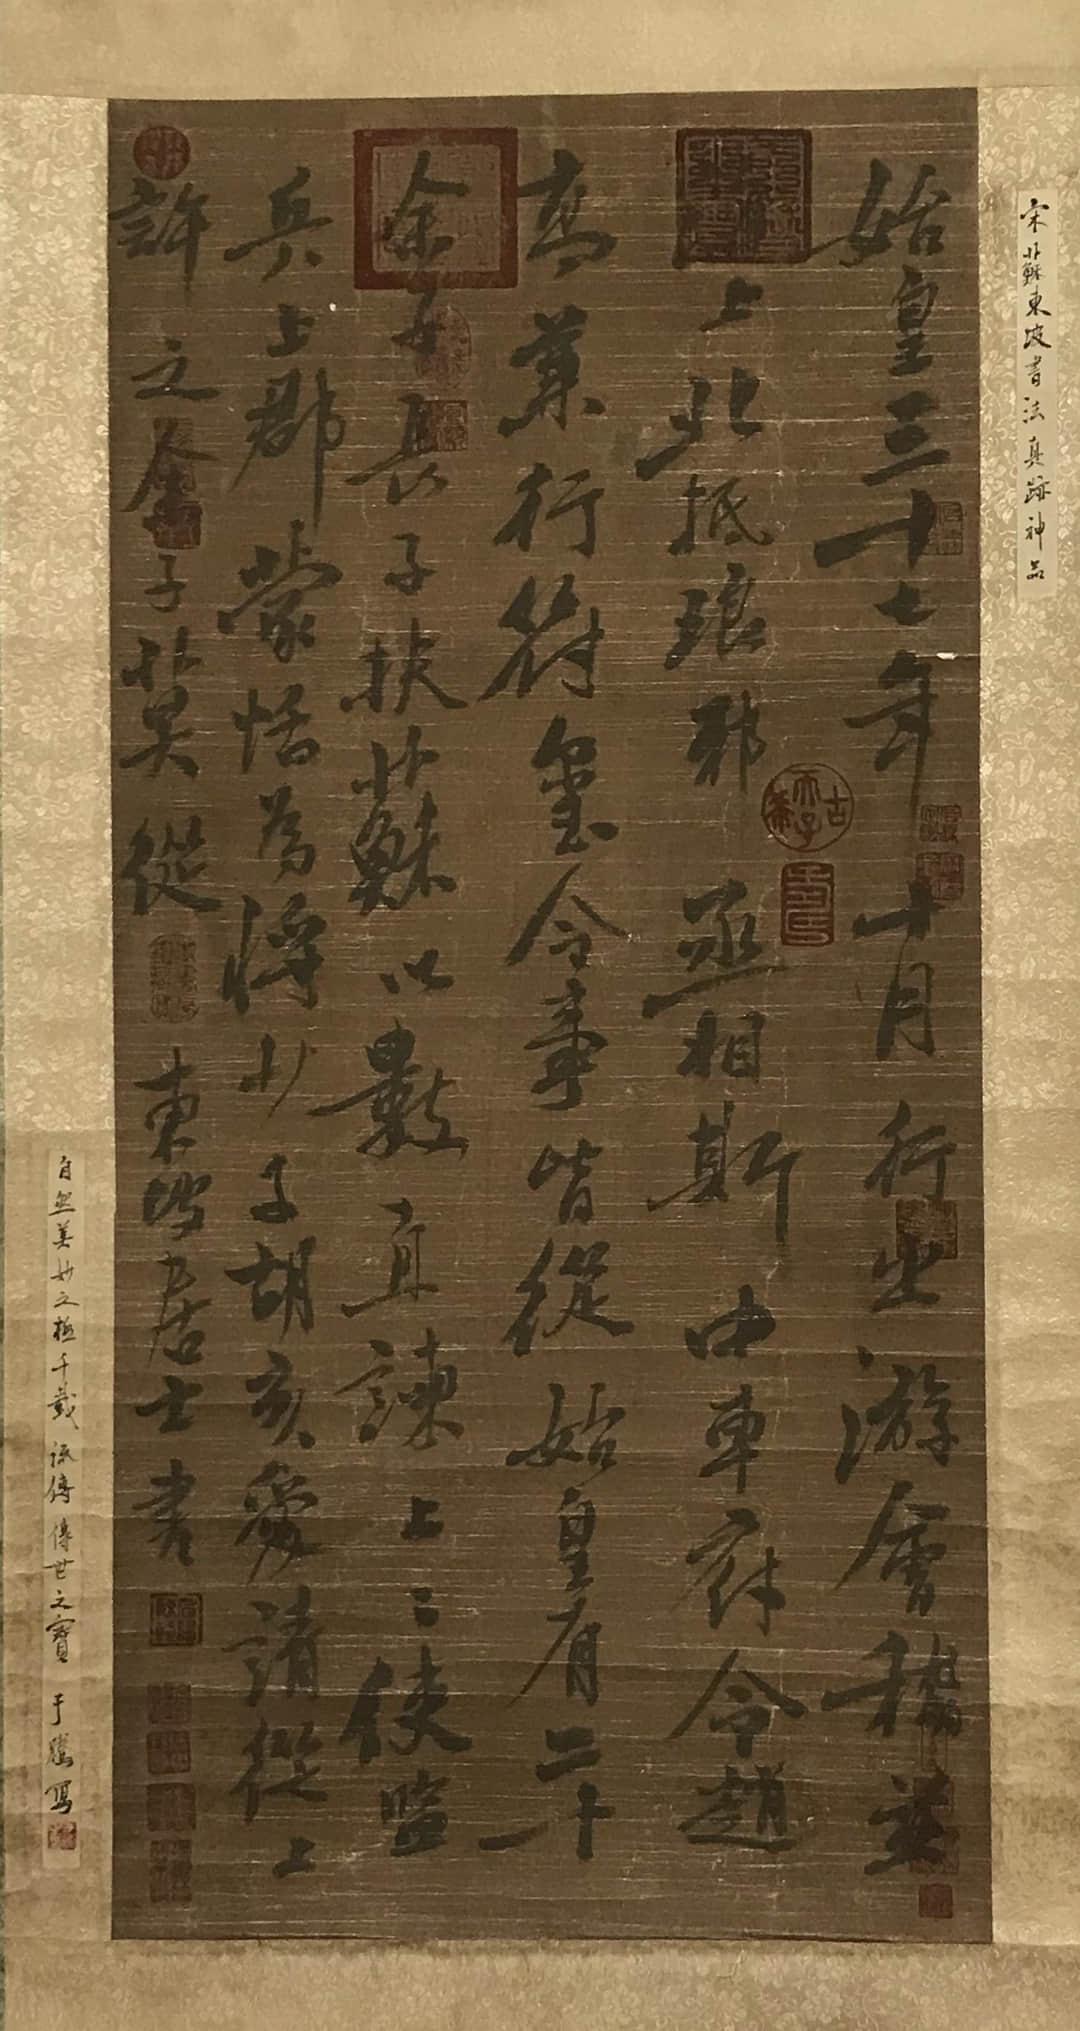 宋蘇東坡書法真跡神品
始皇三十七年十月行出游會稽並
上北抵琅邪丞相斯中車府令趙
高兼行符璽令事皆從始皇有二十
余子長子扶蘇以數直諫上上使監
兵上郡蒙恬為將少子胡亥愛請從上
許之余子莫從東坡居士書
自然美妙之極千載流傳傳世之寶于騰寫